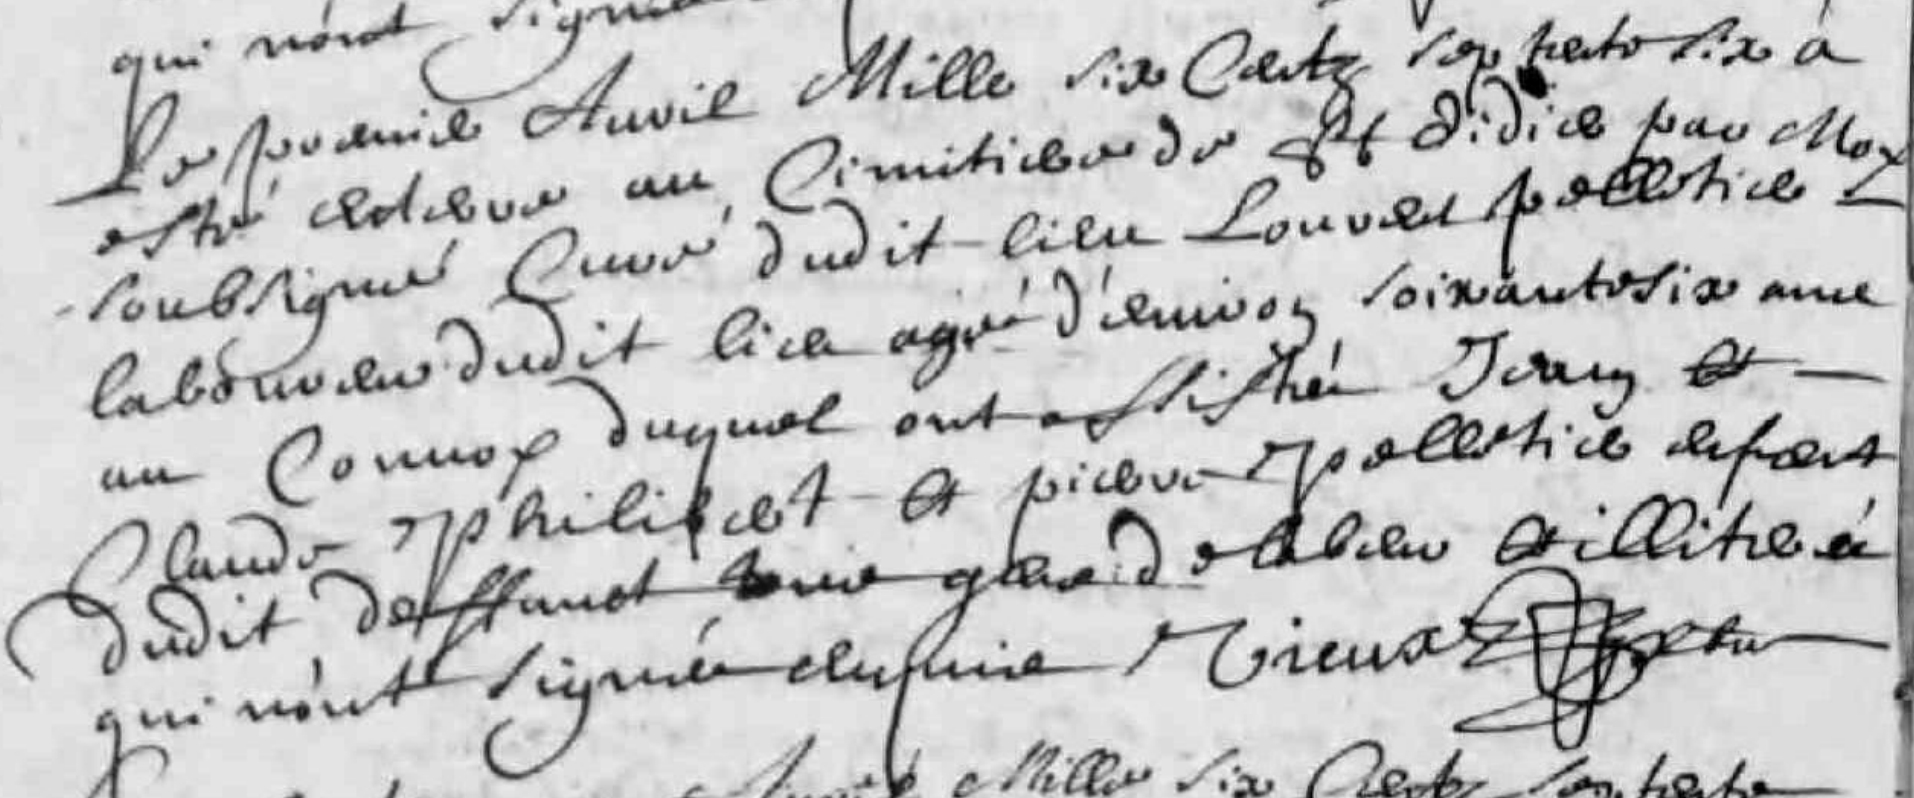 qui n'ont signé
Le premier Auvril Mille six Centz septente six à
esté enterré au Cimitiere de St Didier par Moy
soubsigné Curé dudit lieu Louvet pelletier
laboureur dudit lieu agé d'environ soixante six ans
au Convoy duquel ont assisthé Jean et
Claude Philibert et pierre pelletier enfant
dudit deffunct laboureur et illitéré
qui n'ont signé Vieux
Auvril Mille six Centz septente